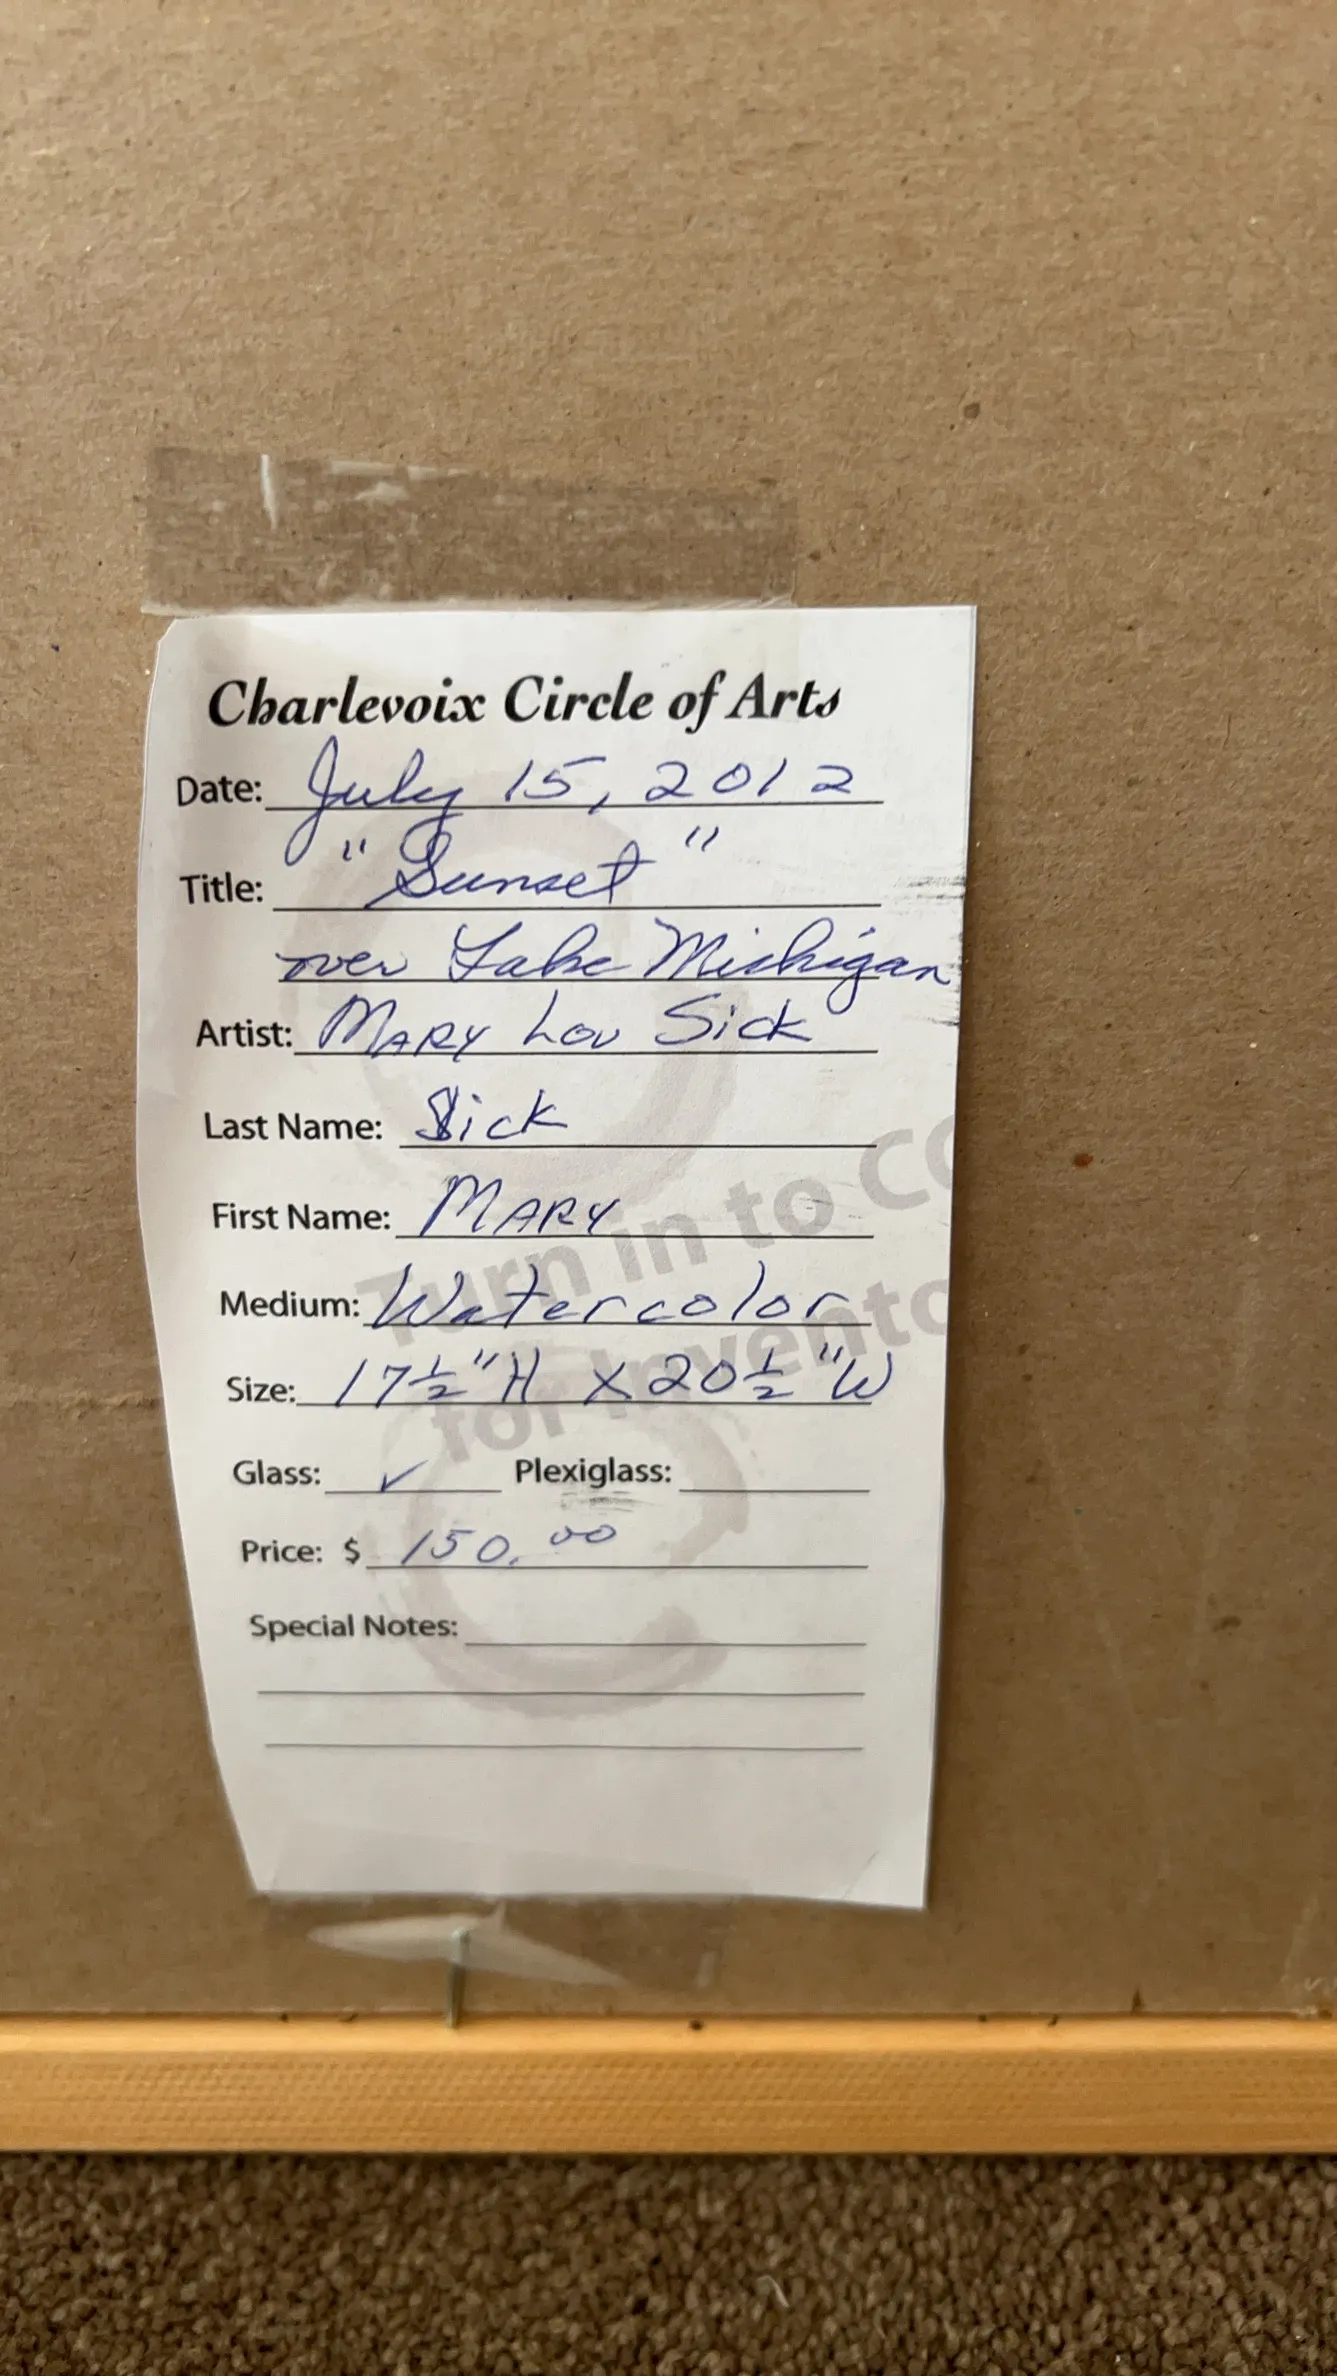 Charlevoix Circle of Arts
Date: July 15, 2012
Title: "Sunset"
over Lake Michigan
Artist: MARY Lou Sick
Last Name: Sick
First Name: MARY
Medium: Watercolor
Size: 17 1/2" H X 20 1/2" W
Glass: ✓ Plexiglass:
Price: $ 150.00
Special Notes:
Turn in to CC
for Invento